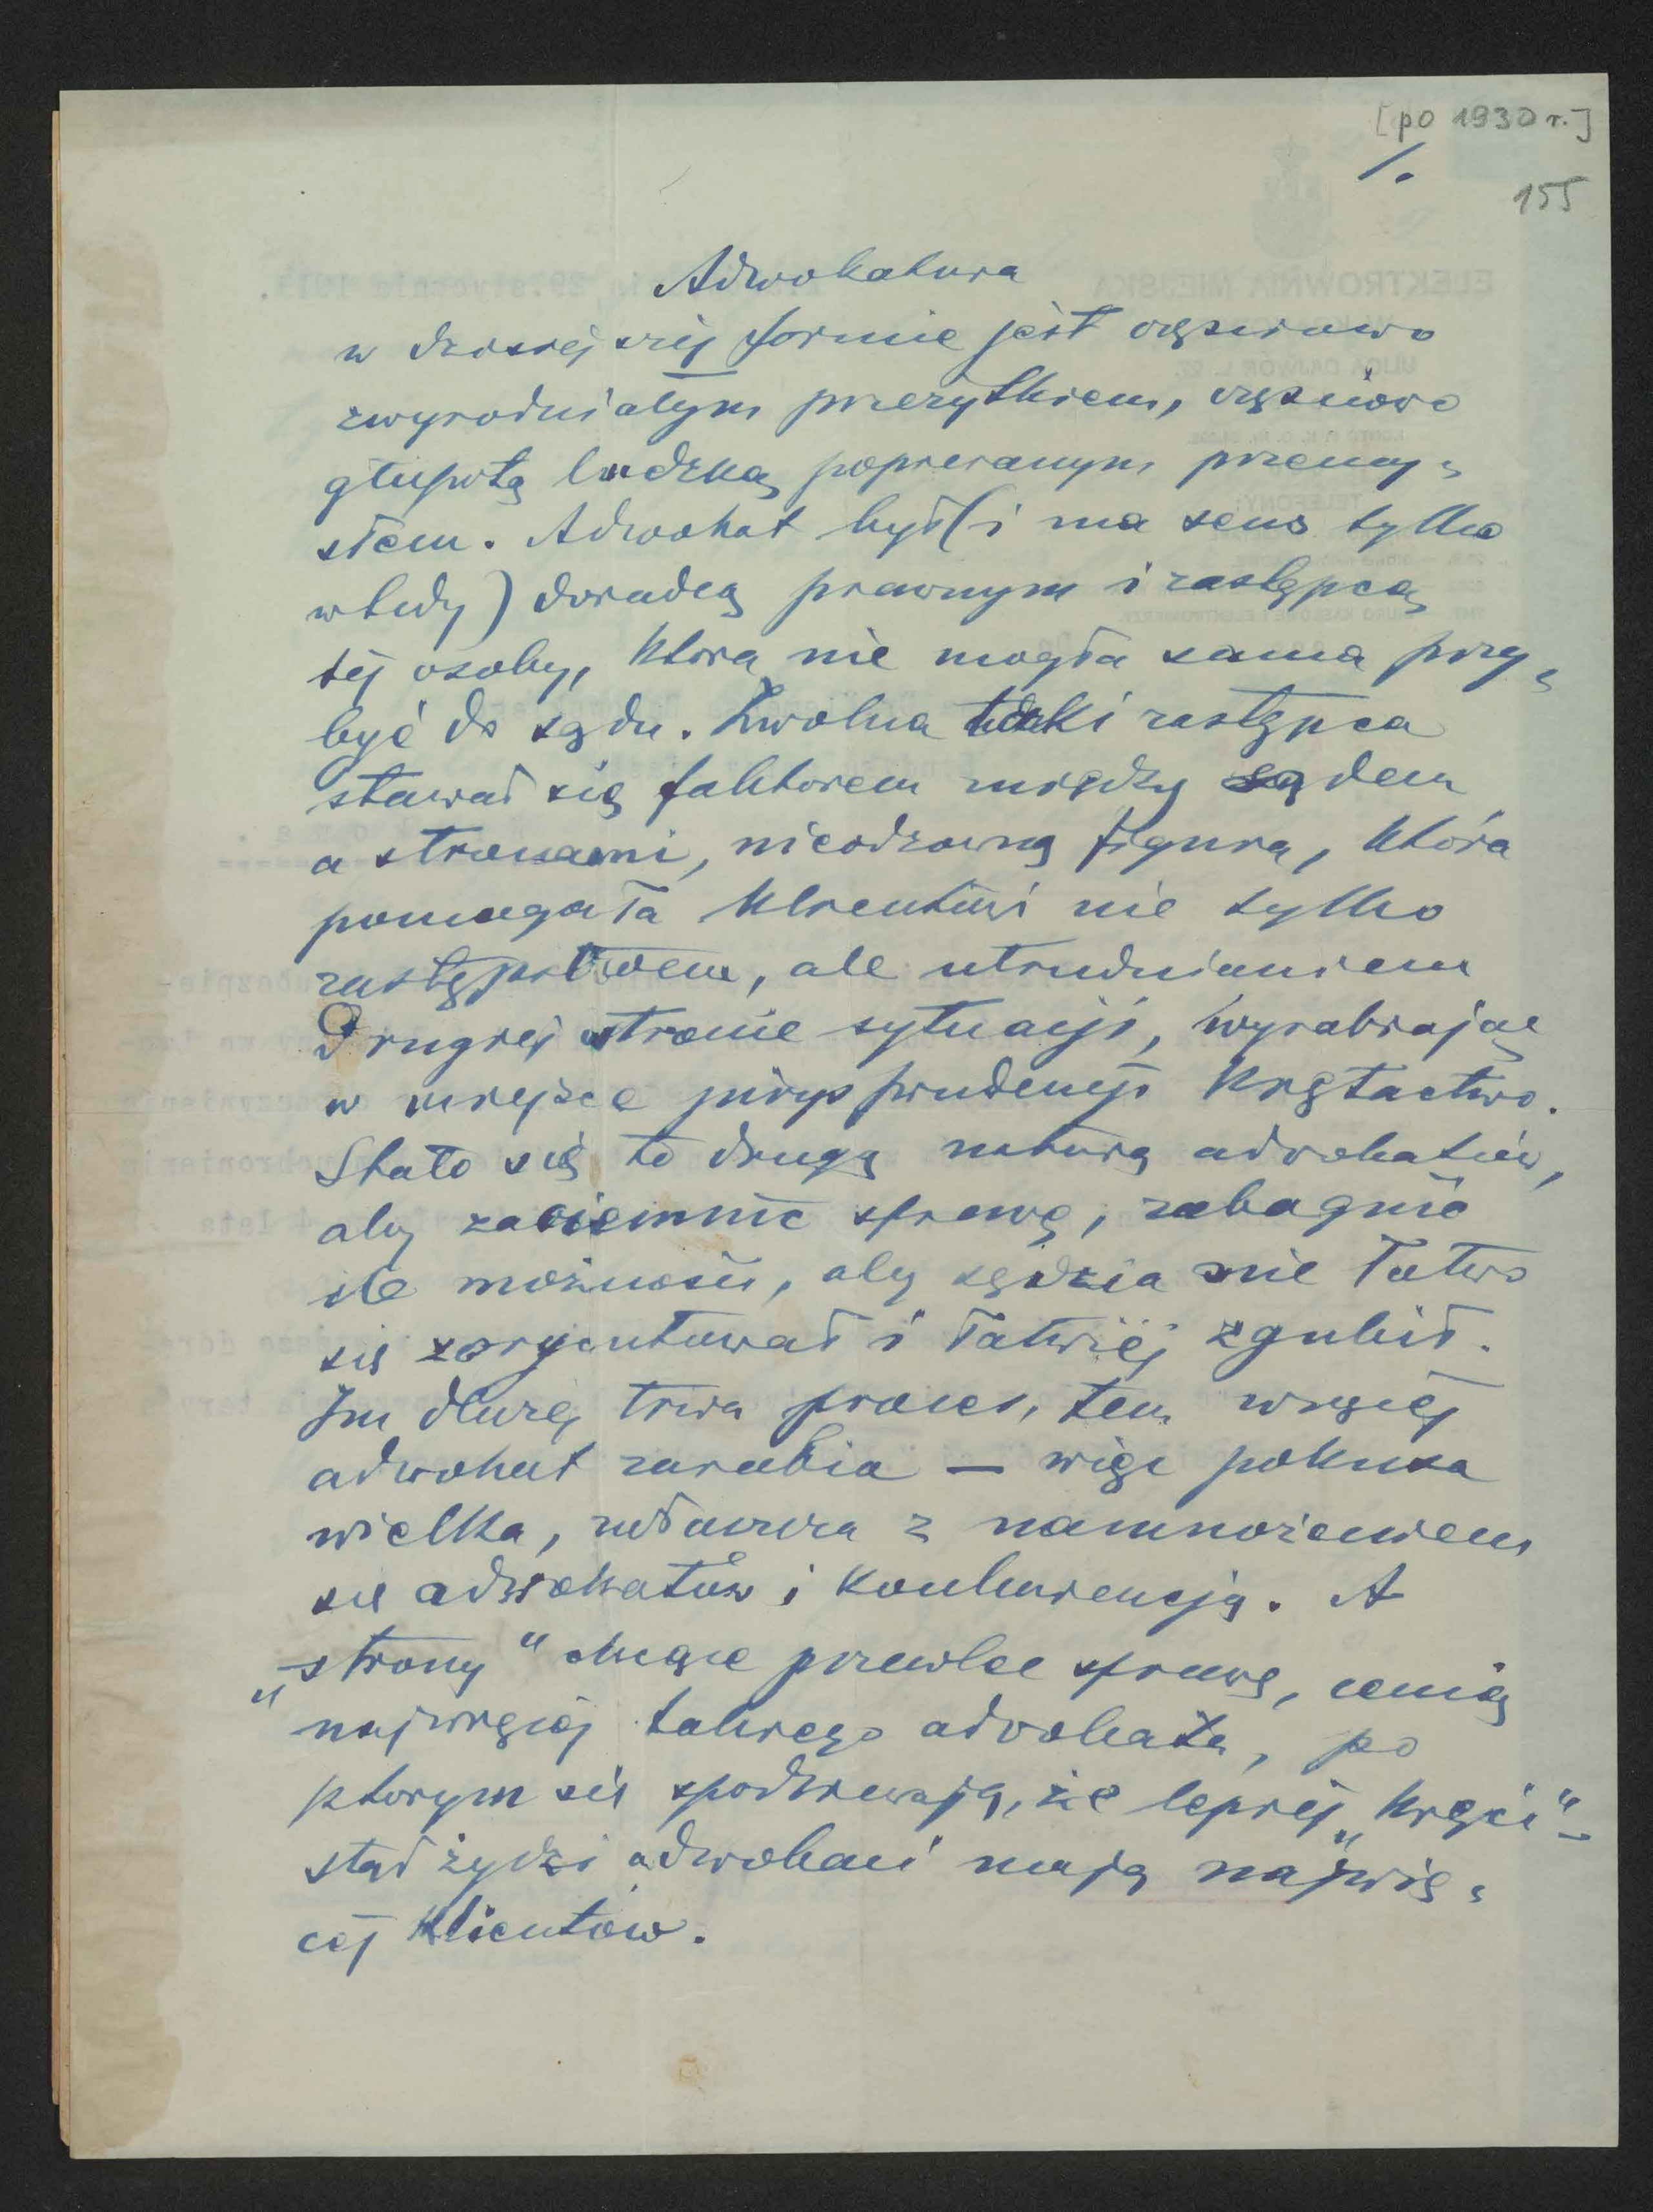 [po 1930 r.]
1.
155
Adwokatura
w dzisiejszej formie jest częściowo
zwyrodniałym przeżytkiem, częściowo
głupotą ludzką popieranym przemy-
słem. Adwokat był (i ma sens tylko
wtedy) doradcą prawnym i zastępcą
tej osoby, która nie mogła sama przy-
być do sądu. Zwolna taki zastępca
stawał się faktorem między sądem
a stronami, nieodzowną figurą, która
pomagała klientowi nie tylko
zastępstwem, ale utrudnianiem
drugiej stronie sytuacji, wyrabiając
w miejsce jurysprudencji krętactwo.
Stało się to drugą naturą adwokatów,
aby zaciemnić sprawę, zabagnić
ile możności, aby sędzia nie łatwo
się zoryentował i łatwiej zgubił.
Im dłużej trwa proces, tem więcej
adwokat zarabia — więc pokusa
wielka, zwłaszcza z namnożeniem
się adwokatów i konkurencją. A
„strony" chcące przewlec sprawę, cenią
najwięcej takiego adwokata, po
ktorym się spodziewają, że lepiej „kręci" -
stąd żydzi adwokaci mają najwię-
cej klientów.